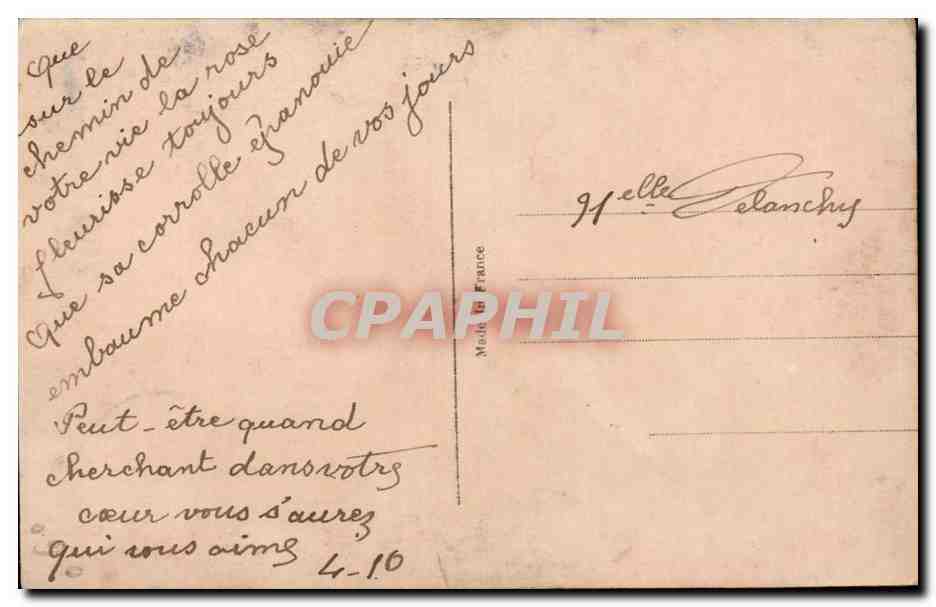 Que
sur le
chemin de
votre vie la rose
fleurisse toujours
Que sa corrolle épanouie
embaume chacun de vos jours
Peut-être quand
cherchant dans votre
cœur vous s'aurez
qui vous aime
4-10
Melle Delanchy
Made in France
CPAPHIL